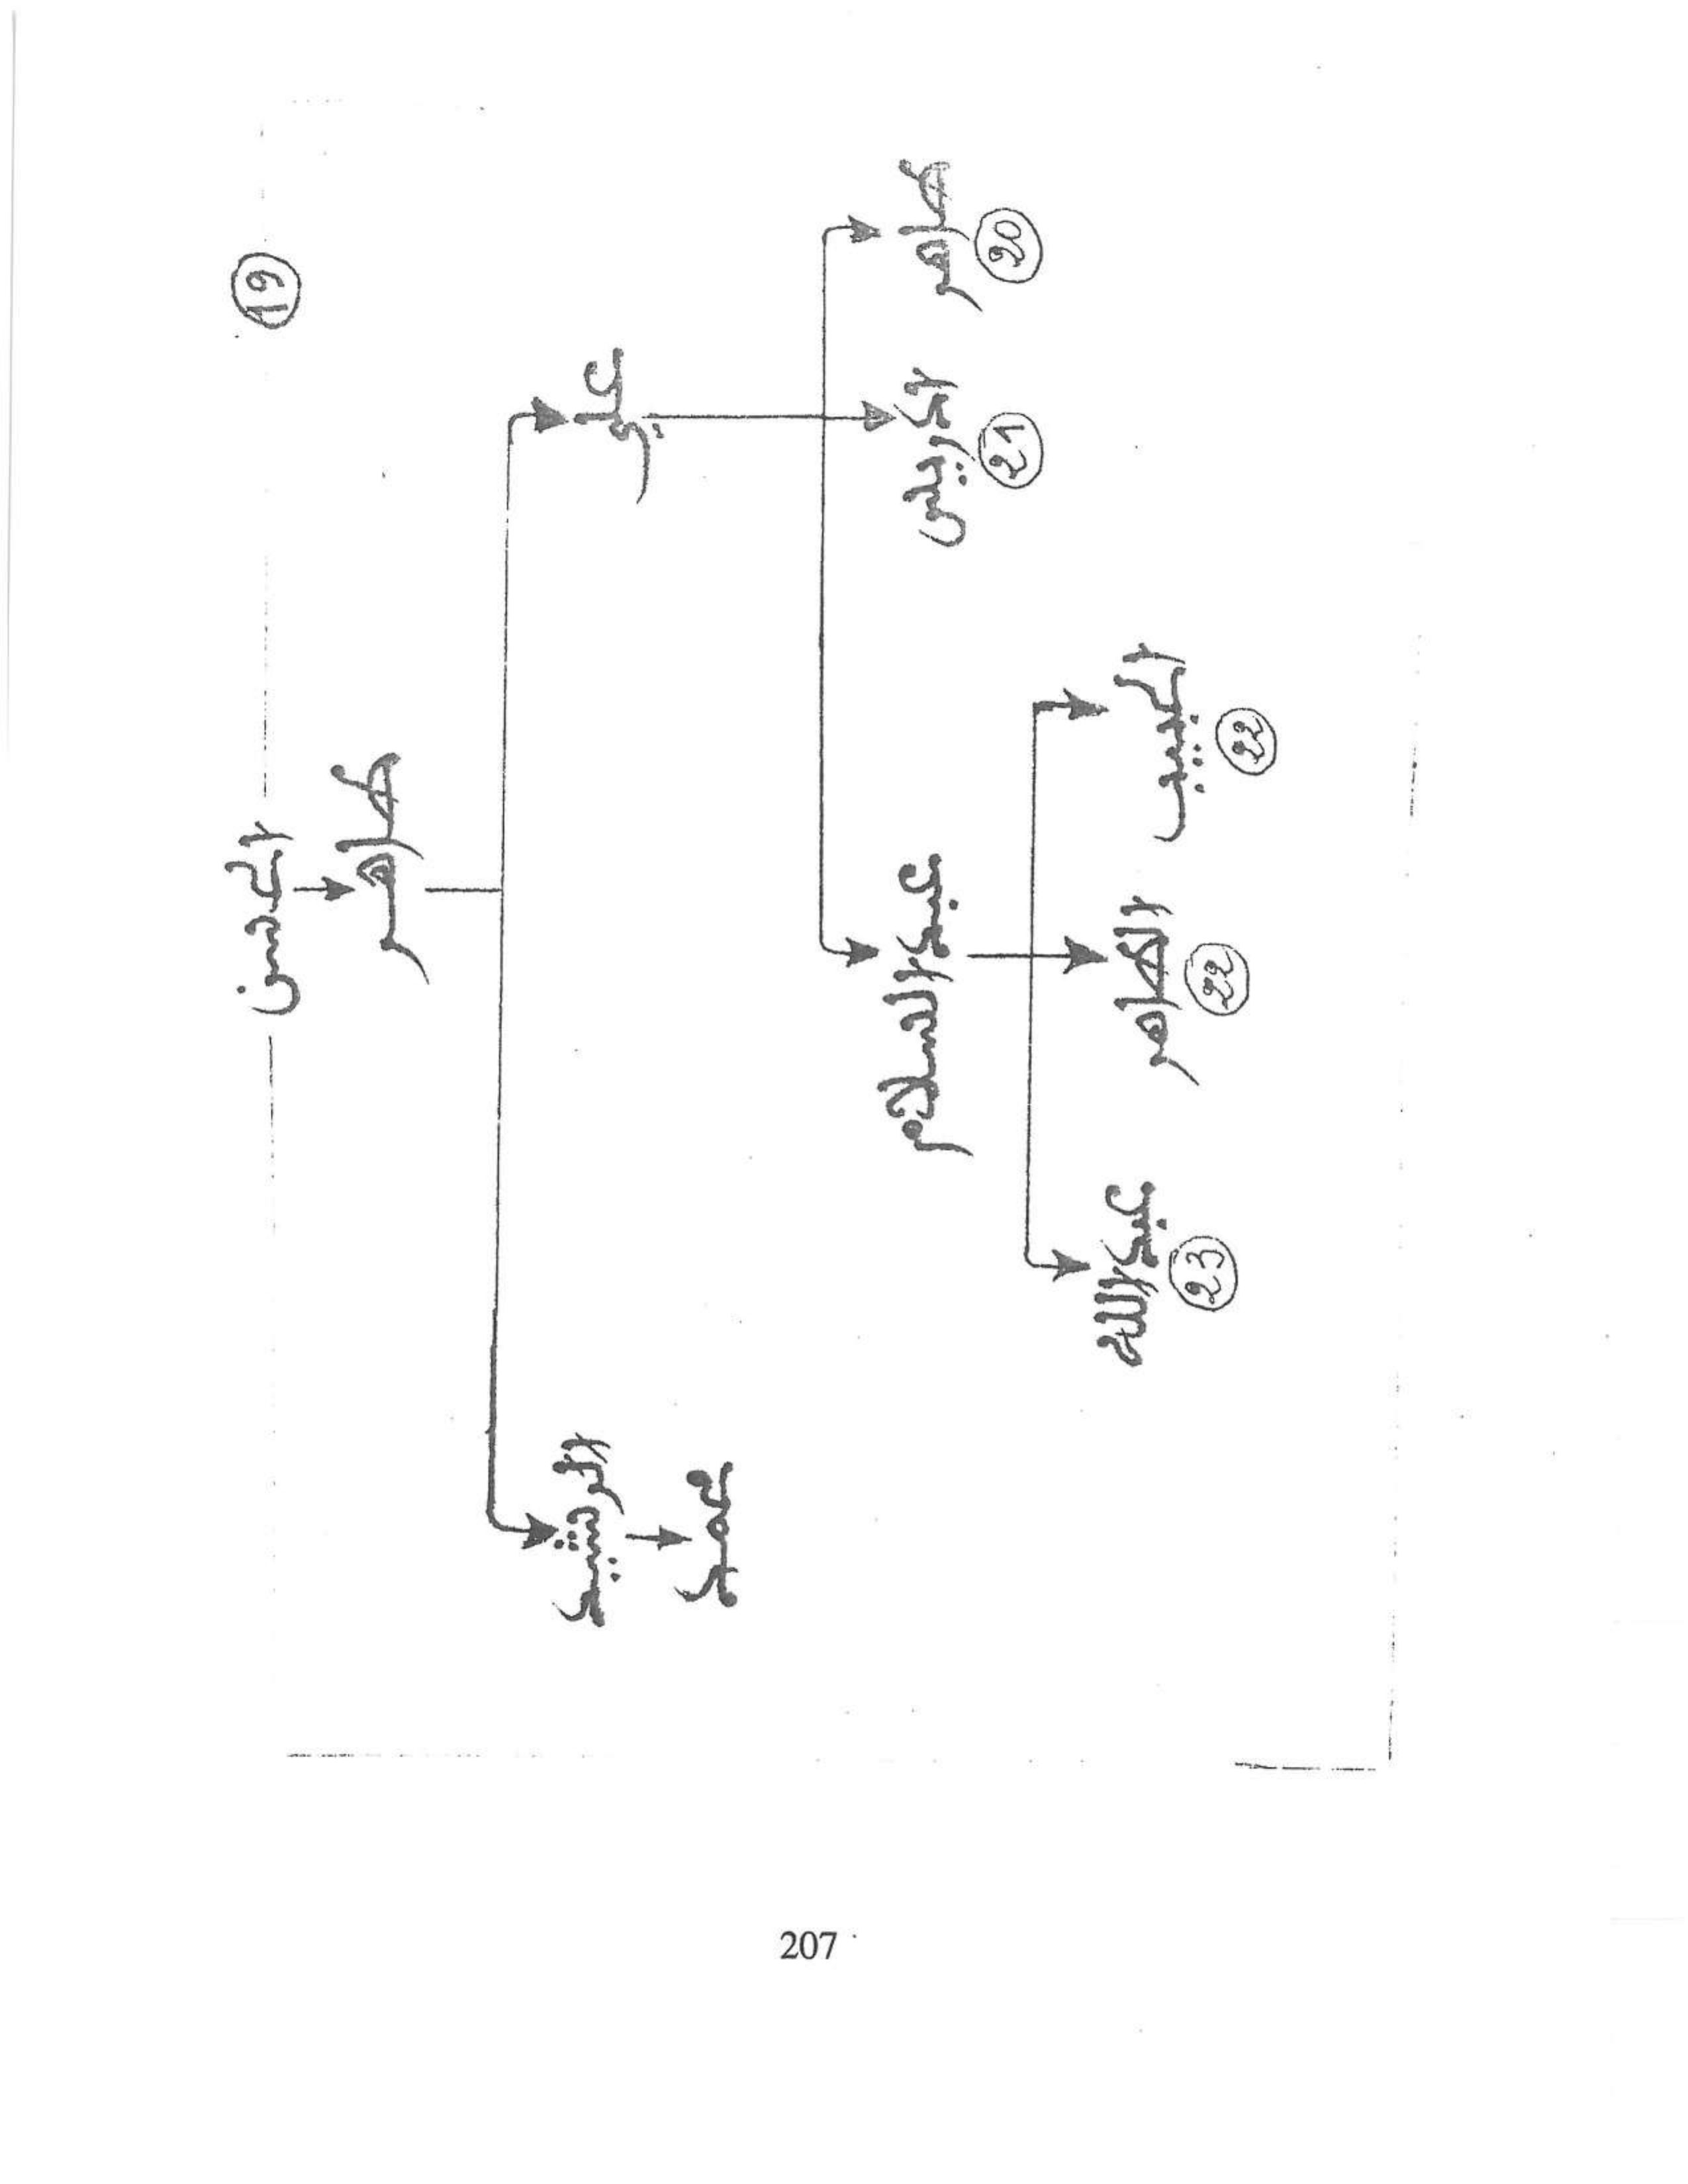 19
الحسن
طاهر
علي
الرشيد
محمد
طاهر
20
ادريس
21
عبد السلام
الحبيب
22
الطاهر
22
عبد الله
23
207